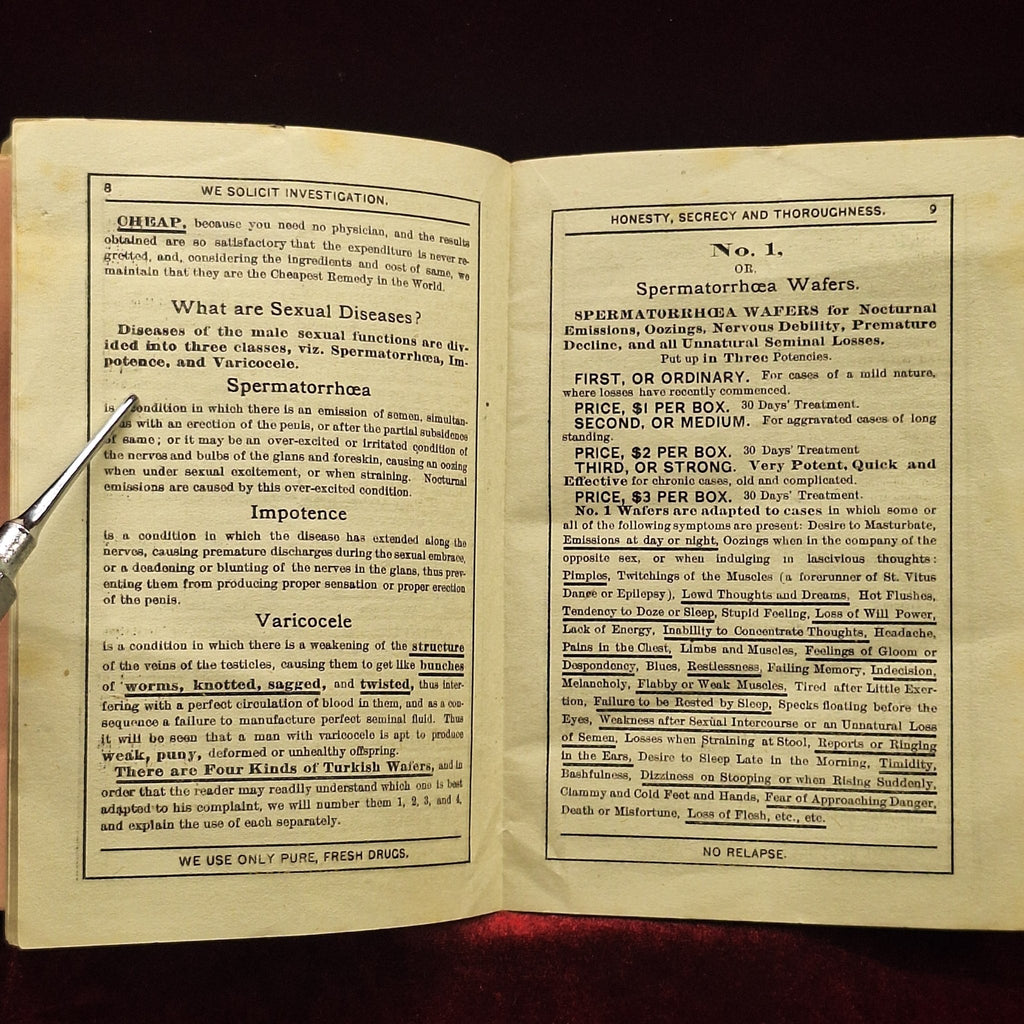 8
WE SOLICIT INVESTIGATION.
CHEAP, because you need no physician, and the results
obtained are so satisfactory that the expenditure is never re-
gretted, and, considering the ingredients and cost of same, we
maintain that they are the Cheapest Remedy in the World.
What are Sexual Diseases?
Diseases of the male sexual functions are div-
ided into three classes, viz. Spermatorrhœa, Im-
potence, and Varicocele.
Spermatorrhœa
is condition in which there is an emission of semen, simultan-
with an erection of the penis, or after the partial subsidence
of same; or it may be an over-excited or irritated condition of
the nerves and bulbs of the glans and foreskin, causing an oozing
when under sexual excitement, or when straining. Nocturnal
emissions are caused by this over-excited condition.
Impotence
is a condition in which the disease has extended along the
nerves, causing premature discharges during the sexual embrace,
or a deadening or blunting of the nerves in the glans, thus prev-
enting them from producing proper sensation or proper erection
of the penis.
Varicocele
is a condition in which there is a weakening of the structure
of the veins of the testicles, causing them to get like bunches
of worms, knotted, sagged, and twisted, thus inter-
fering with a perfect circulation of blood in them, and as a con-
sequence a failure to manufacture perfect seminal fluid. Thus
it will be seen that a man with varicocele is apt to produce
weak, puny, deformed or unhealthy offspring.
There are Four Kinds of Turkish Wafers, and in
order that the reader may readily understand which one is best
adapted to his complaint, we will number them 1, 2, 3, and 4,
and explain the use of each separately.
WE USE ONLY PURE, FRESH DRUGS.
HONESTY, SECRECY AND THOROUGHNESS.
9
No. 1,
OR
Spermatorrhœa Wafers.
SPERMATORRHŒA WAFERS for Nocturnal
Emissions, Oozings, Nervous Debility, Premature
Decline, and all Unnatural Seminal Losses.
Put up in Three Potencies.
FIRST, OR ORDINARY. For cases of a mild nature,
where losses have recently commenced.
PRICE, $1 PER BOX. 30 Days' Treatment.
SECOND, OR MEDIUM. For aggravated cases of long
standing.
PRICE, $2 PER BOX. 30 Days' Treatment
THIRD, OR STRONG. Very Potent, Quick and
Effective for chronic cases, old and complicated.
PRICE, $3 PER BOX. 30 Days' Treatment.
No. 1 Wafers are adapted to cases in which some or
all of the following symptoms are present: Desire to Masturbate,
Emissions at day or night, Oozings when in the company of the
opposite sex, or when indulging in lascivious thoughts:
Pimples, Twitchings of the Muscles (a forerunner of St. Vitus
Dance or Epilepsy), Lewd Thoughts and Dreams, Hot Flushes,
Tendency to Doze or Sleep, Stupid Feeling, Loss of Will Power,
Lack of Energy, Inability to Concentrate Thoughts, Headache,
Pains in the Chest, Limbs and Muscles, Feelings of Gloom or
Despondency, Blues, Restlessness, Failing Memory, Indecision,
Melancholy, Flabby or Weak Muscles, Tired after Little Exer-
tion, Failure to be Rested by Sleep, Specks floating before the
Eyes, Weakness after Sexual Intercourse or an Unnatural Loss
of Semen, Losses when Straining at Stool, Reports or Ringing
in the Ears, Desire to Sleep Late in the Morning, Timidity,
Bashfulness, Dizziness on Stooping or when Rising Suddenly,
Clammy and Cold Feet and Hands, Fear of Approaching Danger,
Death or Misfortune, Loss of Flesh, etc., etc.
NO RELAPSE.